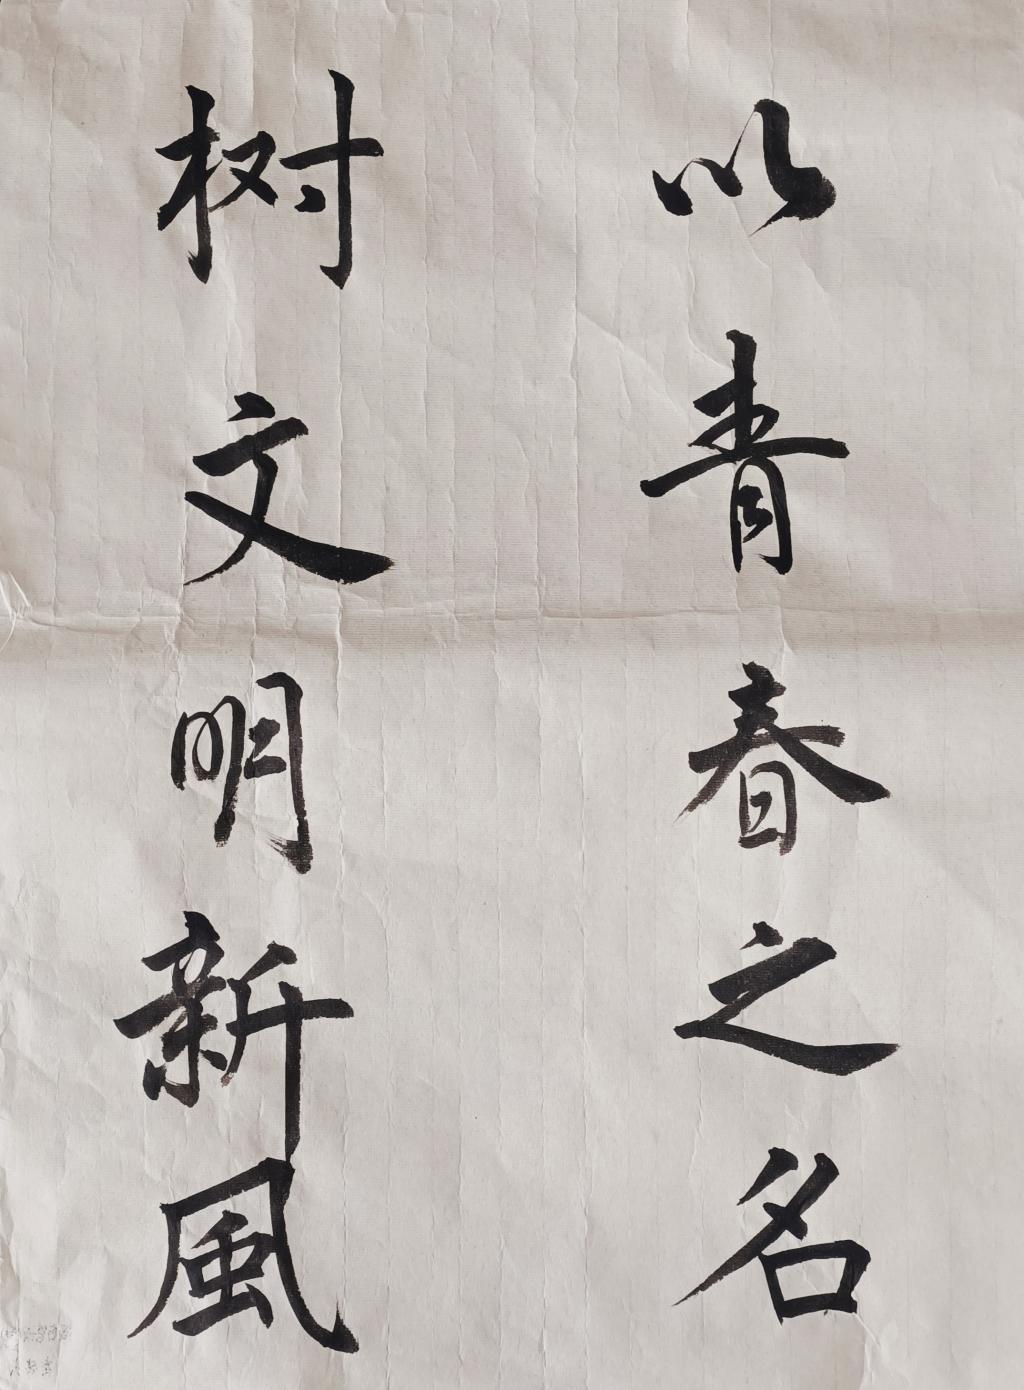 以青春之名
树文明新風